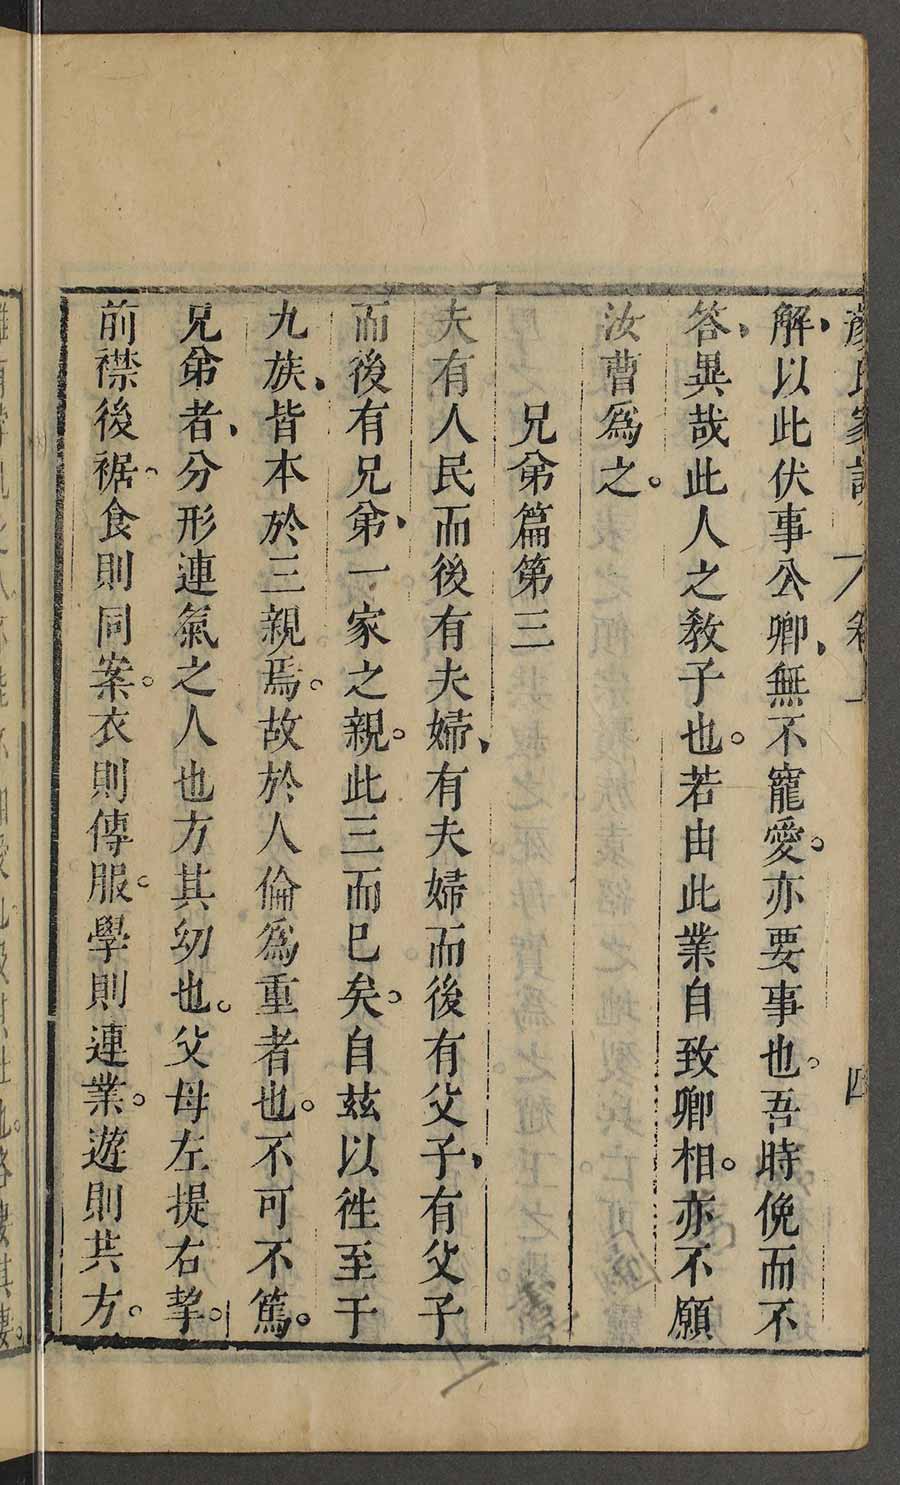 顏氏家訓 卷上 四
解、以此伏事公卿、無不寵愛。亦要事也。吾時俛而不
答、異哉此人之教子也。若由此業自致卿相。亦不願
汝曹爲之。
兄弟篇第三
夫有人民而後有夫婦、有夫婦而後有父子、有父子
而後有兄弟、一家之親。此三而已矣。自茲以徃至于
九族、皆本於三親焉。故於人倫爲重者也。不可不篤。
兄弟者、分形連氣之人也方其幼也。父母左提右挈。
前襟後裾、食則同案。衣則傳服。學則連業。遊則共方。